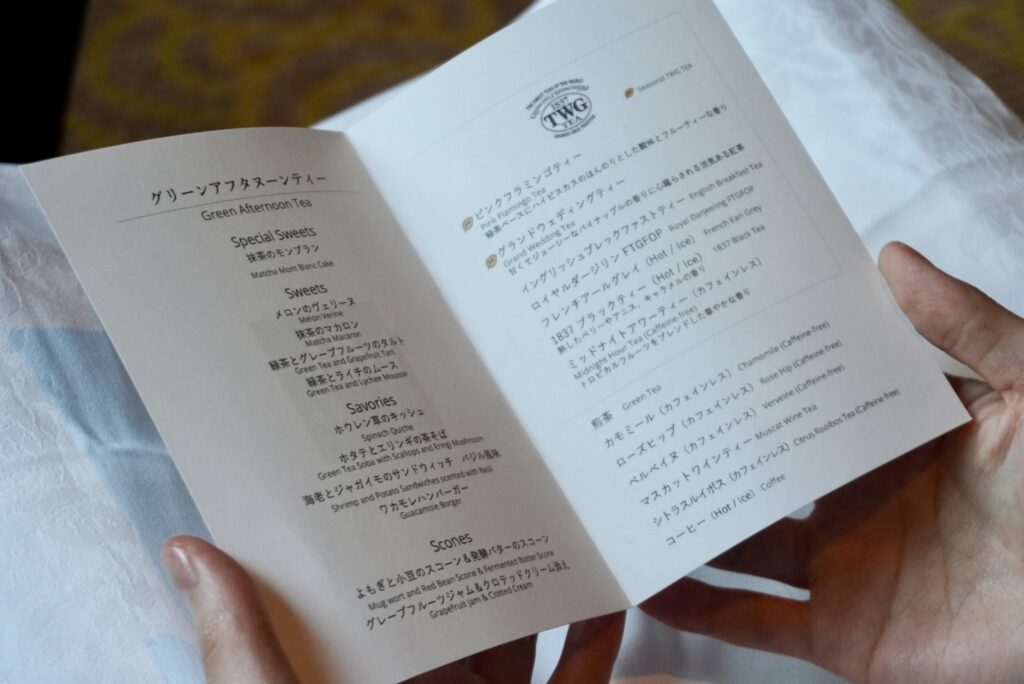 グリーンアフタヌーンティー
Green Afternoon Tea
Special Sweets
抹茶のモンブラン
Matcha Mont Blanc Cake
Sweets
メロンのヴェリーヌ
Melon Verine
抹茶のマカロン
Matcha Macaron
緑茶とグレープフルーツのタルト
Green Tea and Grapefruit Tart
緑茶とライチのムース
Green Tea and Lychee Mousse
Savories
ホウレン草のキッシュ
Spinach Quiche
ホタテとエリンギの茶そば
Green Tea Soba with Scallops and Eringi Mushroom
海老とジャガイモのサンドウィッチ バジル風味
Shrimp and Potato Sandwiches scented with Basil
ワカモレハンバーガー
Guacamole Burger
Scones
よもぎと小豆のスコーン&発酵バターのスコーン
Mug wort and Red Bean Scone & Fermented Butter Scone
グレープフルーツジャム&クロテッドクリーム添え
Grapefruit Jam & Clotted Cream
THE FINEST TEAS OF THE WORLD
1837
TWG
TEA
Seasonal TWG TEA
ピンクフラミンゴティー
Pink Flamingo Tea
緑茶ベースにハイビスカスのほんのりとした酸味とフルーティーな香り
グランドウェディングティー
Grand Wedding Tea
甘くてジューシーなパイナップルの香りに心躍らされる活気ある紅茶
イングリッシュブレックファストティー English Breakfast Tea
ロイヤルダージリン FTGFOP Royal Darjeeling FTGFOP
フレンチアールグレイ (Hot / Ice) French Earl Grey
1837 ブラックティー (Hot / Ice) 1837 Black Tea
熟したベリーやアニス、キャラメルの香り
ミッドナイトアワーティー (カフェインレス)
Midnight Hour Tea (Caffeine-free)
トロピカルフルーツをブレンドした華やかな香り
煎茶 Green Tea
カモミール (カフェインレス) Chamomile (Caffeine-free)
ローズヒップ (カフェインレス) Rose Hip (Caffeine-free)
ベルベイヌ (カフェインレス) Verveine (Caffeine-free)
マスカットワインティー Muscat Wine Tea
シトラスルイボス (カフェインレス) Citrus Rooibos Tea (Caffeine-free)
コーヒー (Hot / Ice) Coffee